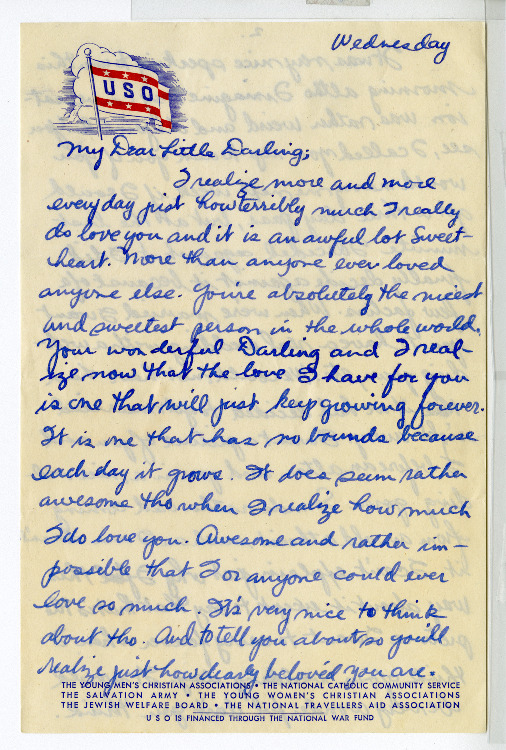 Wednesday
USO
My Dear Little Darling;
I realize more and more
everyday just how terribly much I really
do love you and it is an awful lot Sweet-
heart. More than anyone ever loved
anyone else. You're absolutely the nicest
and sweetest person in the whole world.
Your wonderful Darling and I real-
ize now that the love I have for you
is one that will just keep growing forever.
It is one that has no bounds because
each day it grows. It does seem rather
awesome tho when I realize how much
I do love you. Awesome and rather im-
possible that I or anyone could ever
love so much. It's very nice to think
about tho. And to tell you about so you'll
realize just how dearly beloved you are.
THE YOUNG MEN'S CHRISTIAN ASSOCIATIONS • THE NATIONAL CATHOLIC COMMUNITY SERVICE
THE SALVATION ARMY • THE YOUNG WOMEN'S CHRISTIAN ASSOCIATIONS
THE JEWISH WELFARE BOARD • THE NATIONAL TRAVELLERS AID ASSOCIATION
USO IS FINANCED THROUGH THE NATIONAL WAR FUND